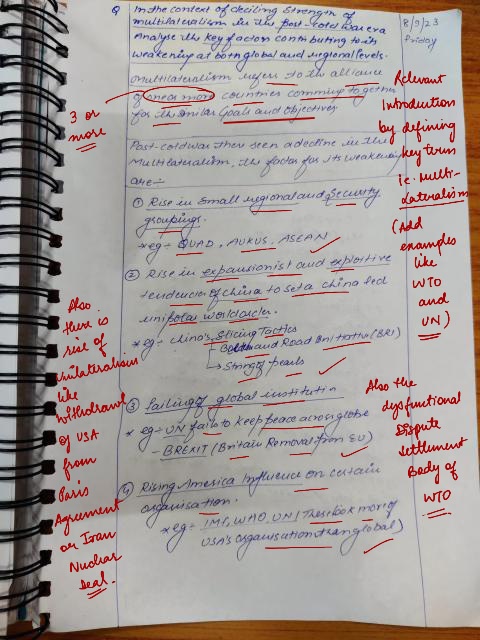 Q In the context of deciling strength of
multilateralism in the post-cold war era
Analyse the key factors contributing to its
weakening at both global and regional levels.
8/9/23
Friday
multilateralism refers to the alliance
of one or more countries comming together
for the similar Goals and objectives
3 or
more
Post-coldwar there seen a decline in the
Multilateralism, the factor for its weakening
are:-
① Rise in small regional and security
groupings.
* eg:- QUAD, AUKUS, ASEAN
② Rise in expansionist and exploitive
tendencies of China to set a china led
unipolar world order.
* eg:- China's Slicing Tactics
and Road Initiative (BRI)
String of pearls
③ failing of global institution
* eg:- UN fails to keep peace across globe
- BREXIT (Britain Removal from EU)
④ Rising America Influence on certain
organisation.
* eg:- IMF, WHO, UN (These look more of
USA's organisation than global)
Relevant
Introduction
by defining
key term
i.e. Multi-
lateralism
(Add
examples
like
WTO
and
UN)
Also the
dysfunctional
Dispute
settlement
Body of
WTO
Also
there is
rise of
unilateralism
like
withdrawal
of USA
from
Paris
Agreement
or Iran
Nuclear
deal.